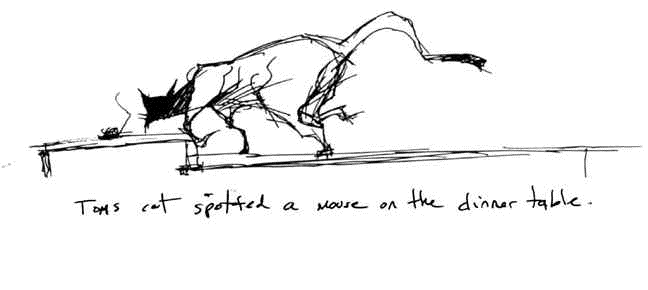 Toms cat spotted a mouse on the dinner table.